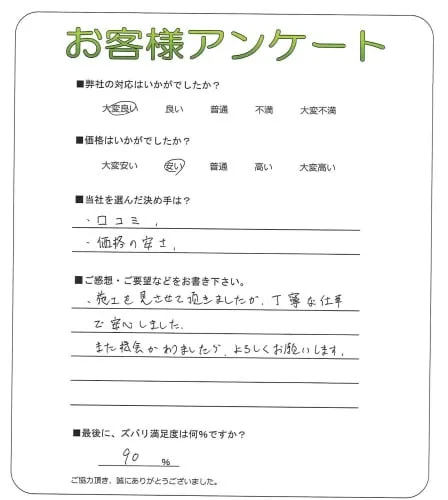 お客様アンケート
■弊社の対応はいかがでしたか？
大変良い 良い 普通 不満 大変不満
■価格はいかがでしたか？
大変安い 安い 普通 高い 大変高い
■当社を選んだ決め手は？
・口コミ、
・価格の安さ、
■ご感想・ご要望などをお書き下さい。
、施工を見させて頂きましたが、丁寧な仕事
で安心しました。
また機会がありましたら、よろしくお願いします。
■最後に、ズバリ満足度は何％ですか？
90 %
ご協力頂き、誠にありがとうございました。